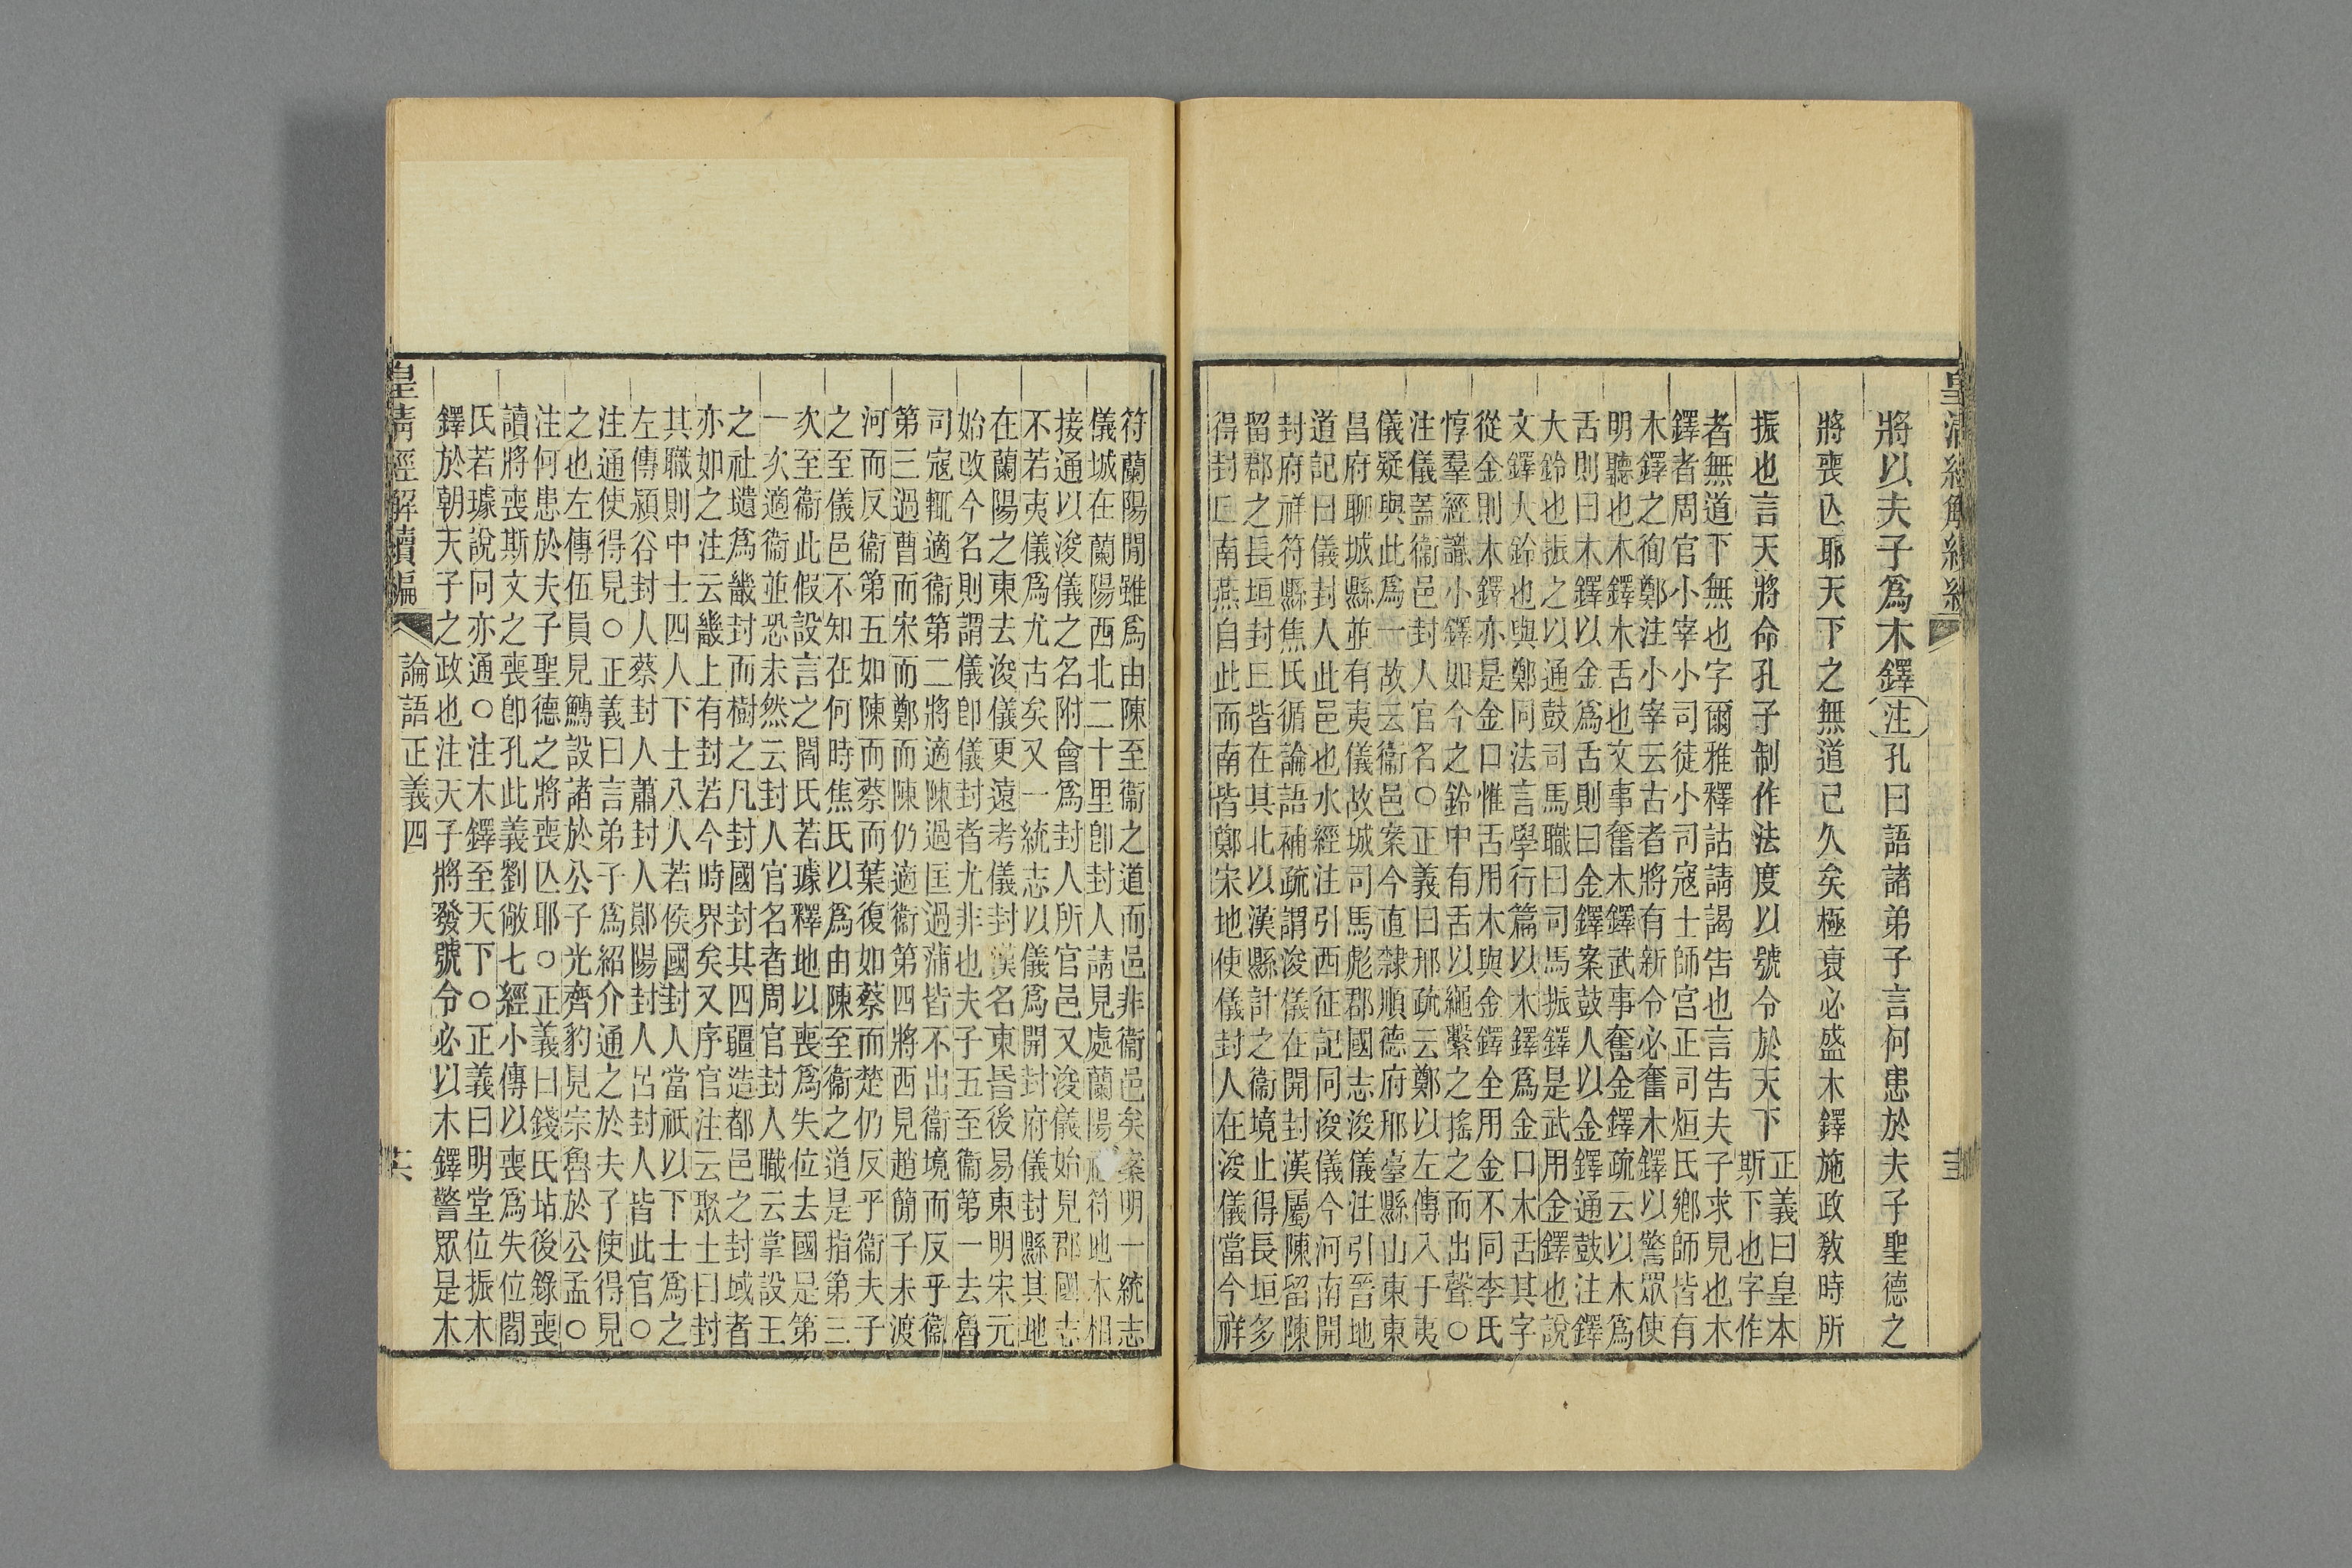 將以夫子爲木鐸注孔曰語諸弟子言何患於夫子聖德之
將喪亾耶天下之無道已久矣極衰必盛木鐸施政教時所
振也言天將命孔子制作法度以號令於天下
正義曰皇本
斯下也字作
者無道下無也字爾雅釋詁請謁告也言告夫子求見也木
鐸者周官小宰小司徒小司寇士師宮正司烜氏鄉師皆有
木鐸之徇鄭注小宰云古者將有新令必奮木鐸以警眾使
明聽也木鐸木舌也文事奮木鐸武事奮金鐸疏云以木爲
舌則曰木鐸以金爲舌則曰金鐸案鼓人以金鐸通鼓注鐸
大鈴也振之以通鼓司馬職曰司馬振鐸是武用金鐸也說
文鐸大鈴也與鄭同法言學行篇以木鐸爲金口木舌其字
從金則木鐸亦是金口惟舌用木與金鐸全用金不同李氏
惇羣經識小鐸如今之鈴中有舌以繩繫之搖之而出聲○
注儀蓋衞邑封人官名○正義曰邢疏云鄭以左傳入于夷
儀疑與此爲一故云衞邑案今直隸順德府邢臺縣山東東
昌府聊城縣並有夷儀故城司馬彪郡國志浚儀注引晉地
道記曰儀封人此邑也水經注引西征記同浚儀今河南開
封府祥符縣焦氏循論語補疏謂浚儀在開封漢屬陳留陳
留郡之長垣封丘皆在其北以漢縣計之衞境止得長垣多
得封丘南燕自此而南皆鄭宋地使儀封人在浚儀當今祥
符蘭陽閒雖爲由陳至衞之道而邑非衞邑矣案明一統志
儀城在蘭陽西北二十里卽封人請見處蘭陽符地本相
接通以浚儀之名附會爲封人所官邑又浚儀始見郡國志
不若夷儀爲尤古矣又一統志以儀爲開封府儀封縣其地
在蘭陽之東去浚儀更遠考儀封漢名東昬後易東明宋元
始改今名則謂儀卽儀封者尤非也夫子五至衞第一去魯
司寇輒適衞第二將適陳過匡過蒲皆不出衞境而反乎衞
第三過曹而宋而鄭而陳仍適衞第四將西見趙簡子未渡
河而反衞第五如陳而蔡而葉復如蔡而楚仍反乎衞夫子
之至儀邑不知在何時焦氏以爲由陳至衞之道是指第三
次至衞此假設言之閻氏若璩釋地以喪爲失位去國是第
一次適衞並恐未然云封人官名者周官封人職云掌設王
之社壝爲畿封而樹之凡封國封其四疆造都邑之封域者
亦如之注云畿上有封若今時界矣又序官注云聚土曰封
其職則中士四人下士八人若侯國封人當祇以下士爲之
左傳潁谷封人蔡封人蕭封人鄖陽封人呂封人皆此官○
注通使得見○正義曰言弟子爲紹介通之於夫子使得見
之也左傳伍員見鱄設諸於公子光齊豹見宗魯於公孟○
注何患於夫子聖德之將喪亾耶○正義曰錢氏坫後錄喪
讀將喪斯文之喪卽孔此義劉敞七經小傳以喪爲失位閻
氏若璩說同亦通○注木鐸至天下○正義曰明堂位振木
鐸於朝天子之政也注天子將發號令必以木鐸警眾是木
皇清經解續編 論語正義四